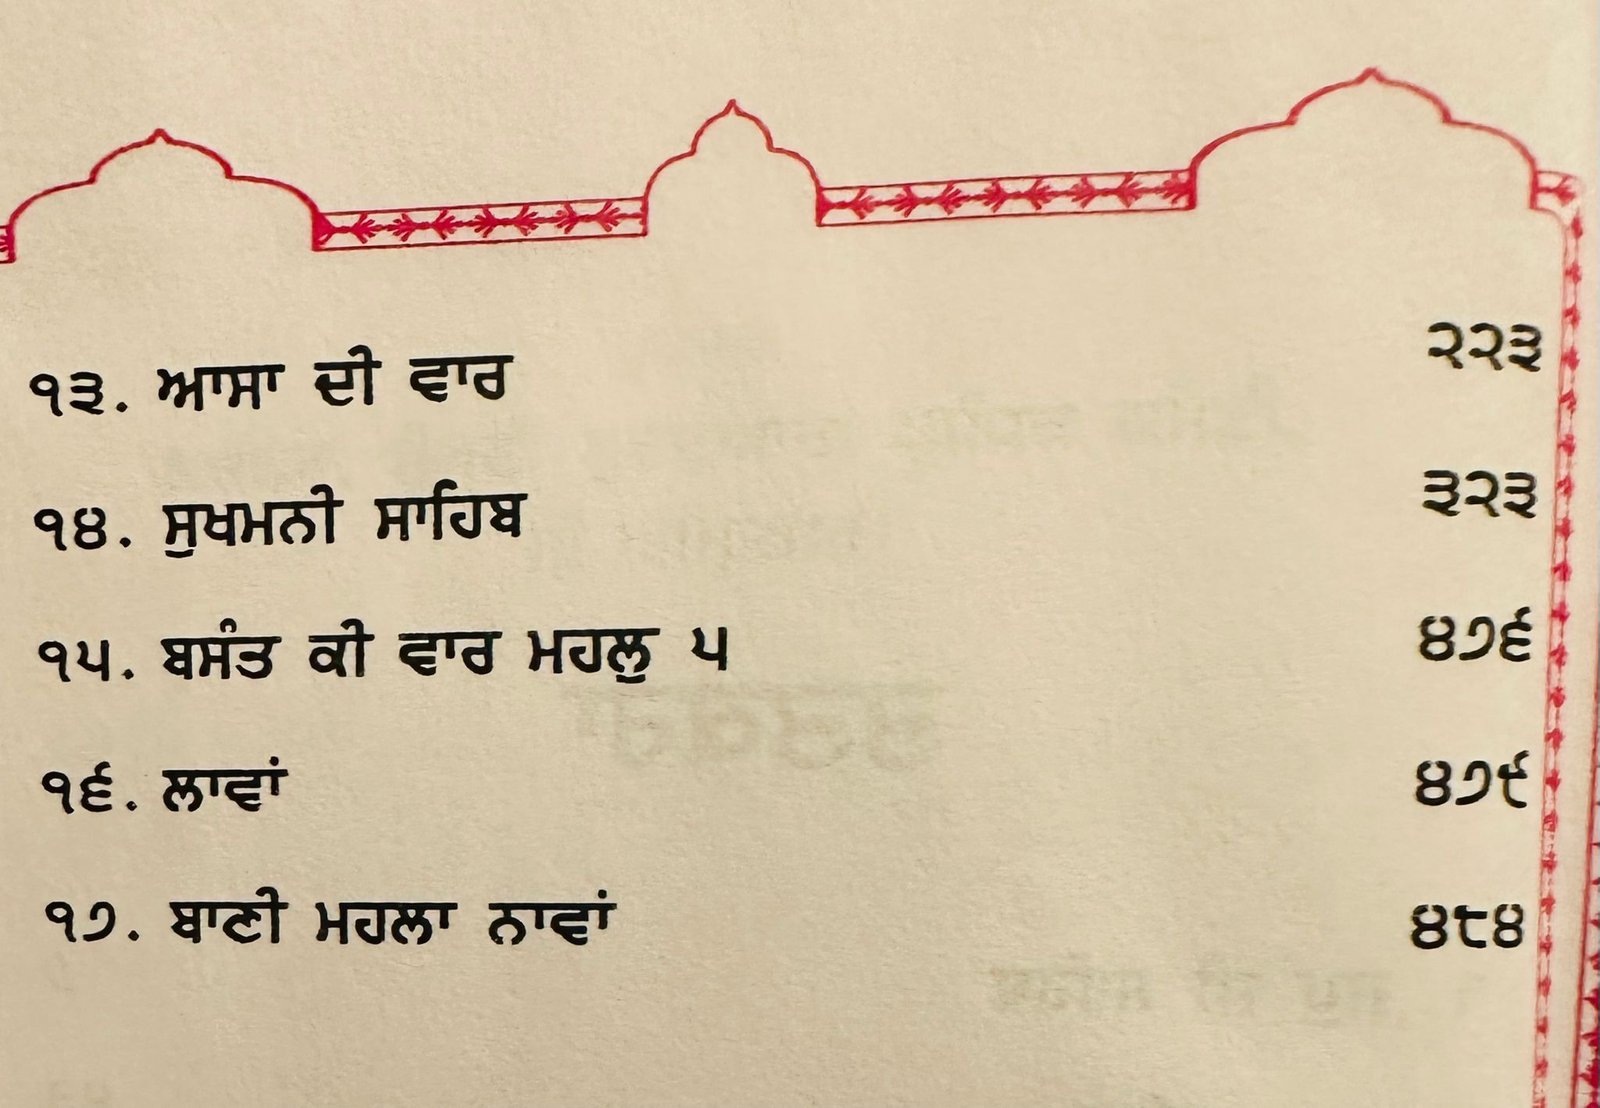 ੧੩. ਆਸਾ ਦੀ ਵਾਰ ੨੨੩
੧੪. ਸੁਖਮਨੀ ਸਾਹਿਬ ੩੨੩
੧੫. ਬਸੰਤ ਕੀ ਵਾਰ ਮਹਲੁ ੫ ੪੭੬
੧੬. ਲਾਵਾਂ ੪੭੯
੧੭. ਬਾਣੀ ਮਹਲਾ ਨਾਵਾਂ ੪੮੪